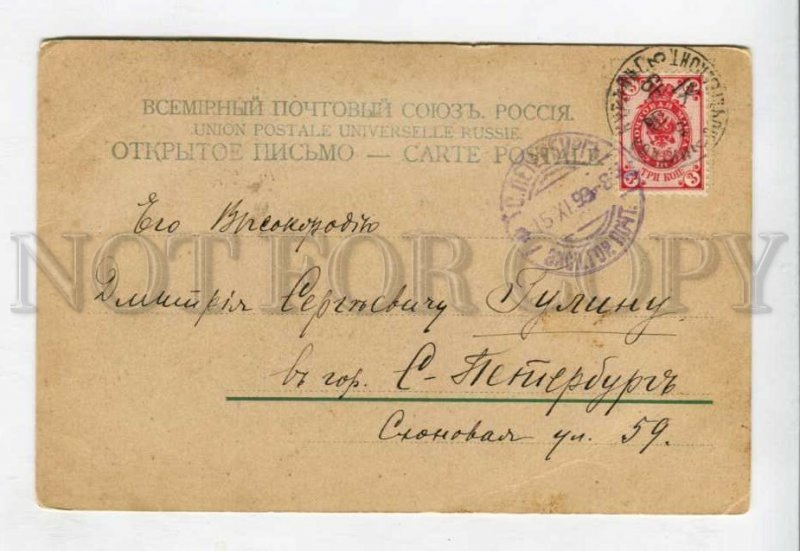 ВСЕМІРНЫЙ ПОЧТОВЫЙ СОЮЗЪ. РОССІЯ.
UNION POSTALE UNIVERSELLE RUSSIE.
ОТКРЫТОЕ ПИСЬМО — CARTE POSTALE
3 3
ПОЧТОВАЯ МАРКА
3 ТРИ КОП. 3
С.ПЕТЕРБУРГЪ
Его Высокородію
NOT FOR COPY
Дмитрія Сергѣевичу Гулину
въ гор. С-Петербургъ
Слоновая ул. 59.